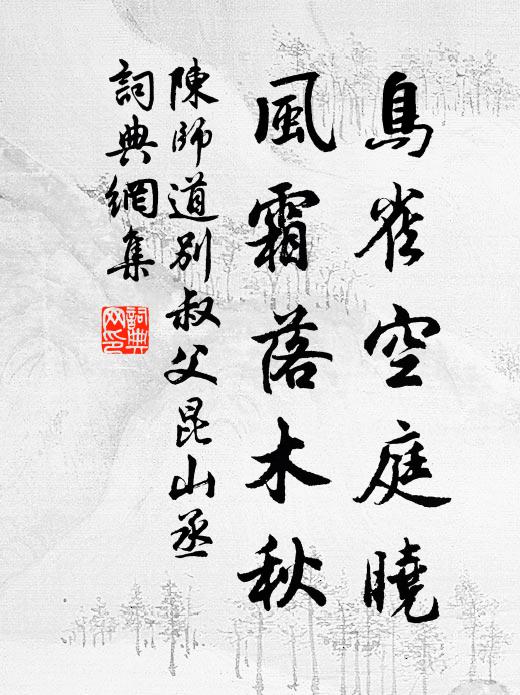 鳥雀空庭曉
風霜落木秋
陳師道別叔父昆山丞
詞典網集
詞典網印